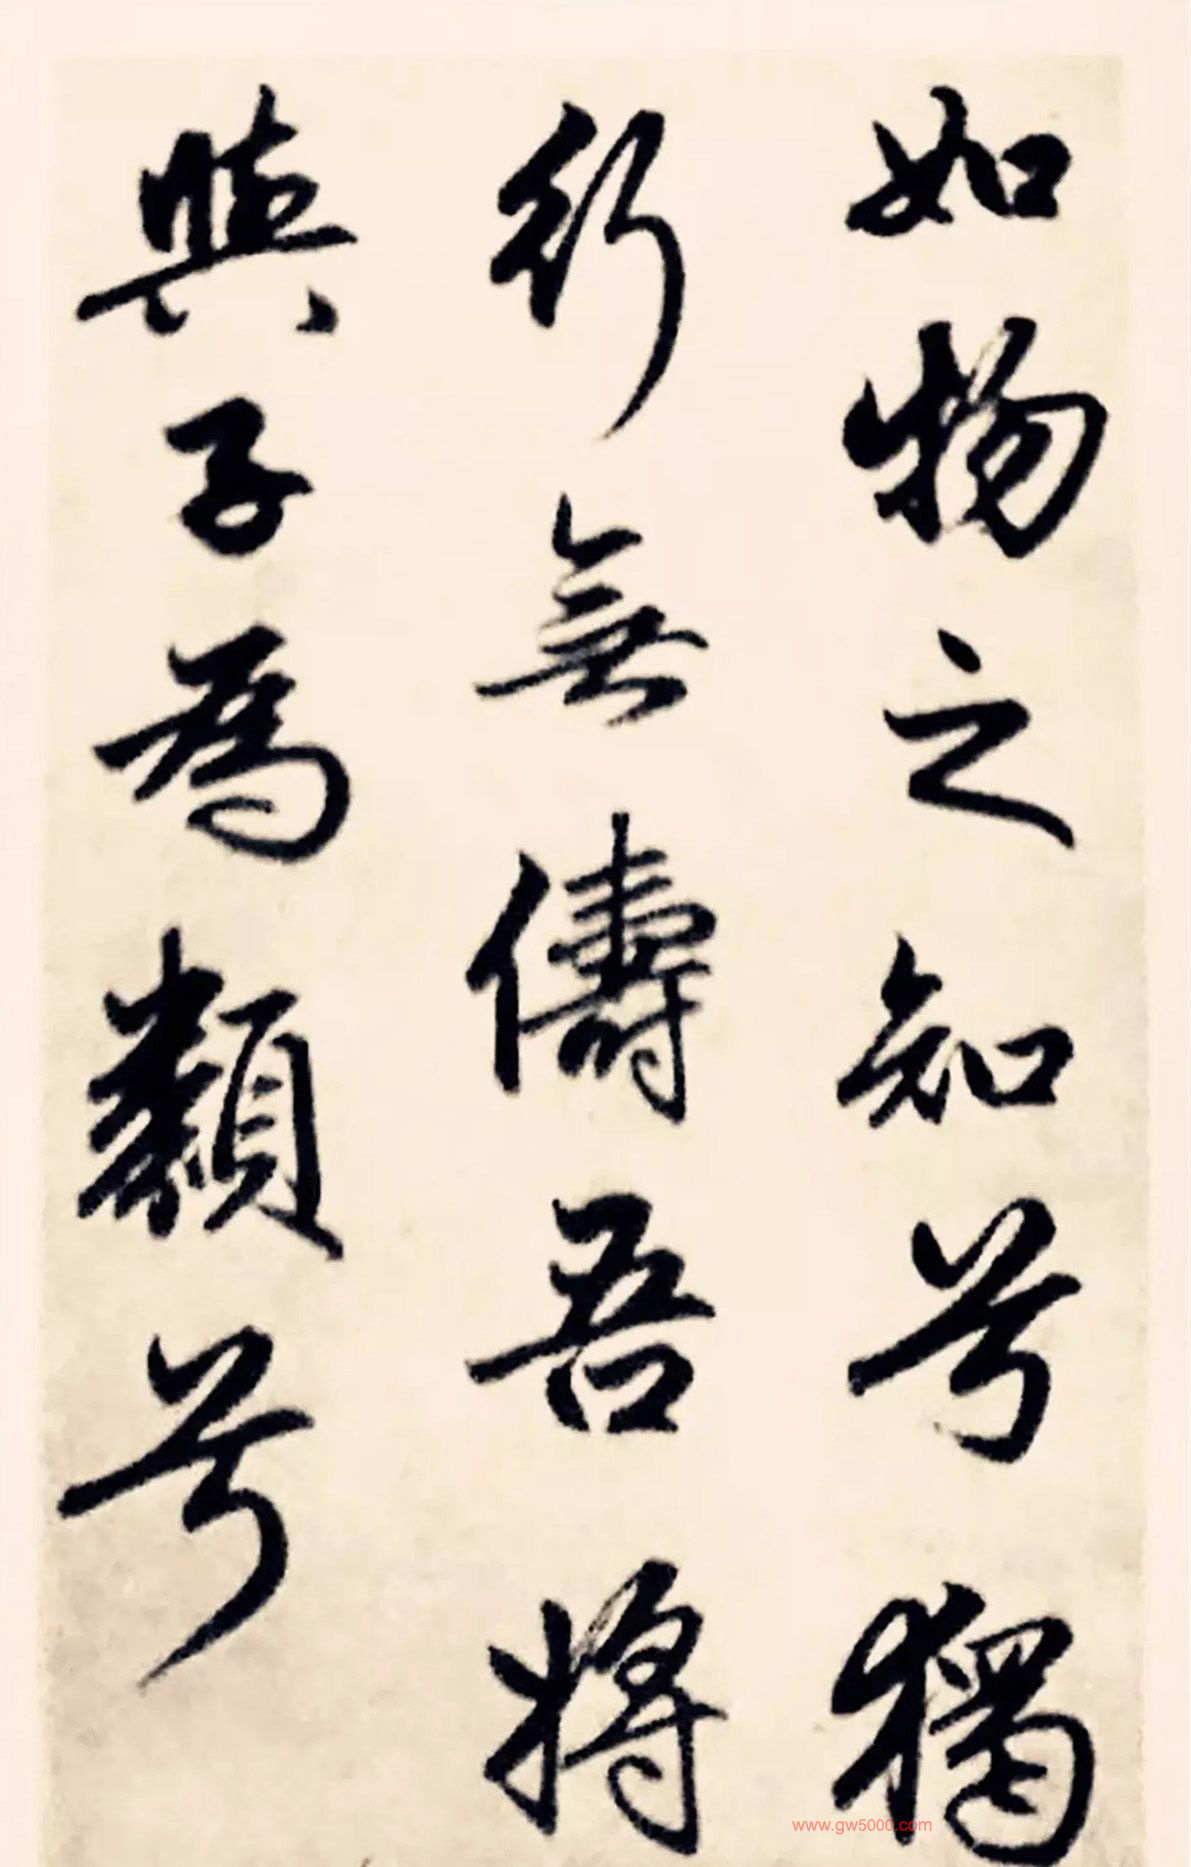 如物之知兮獨
行無儔吾將
與子為類兮
www.gw5000.com